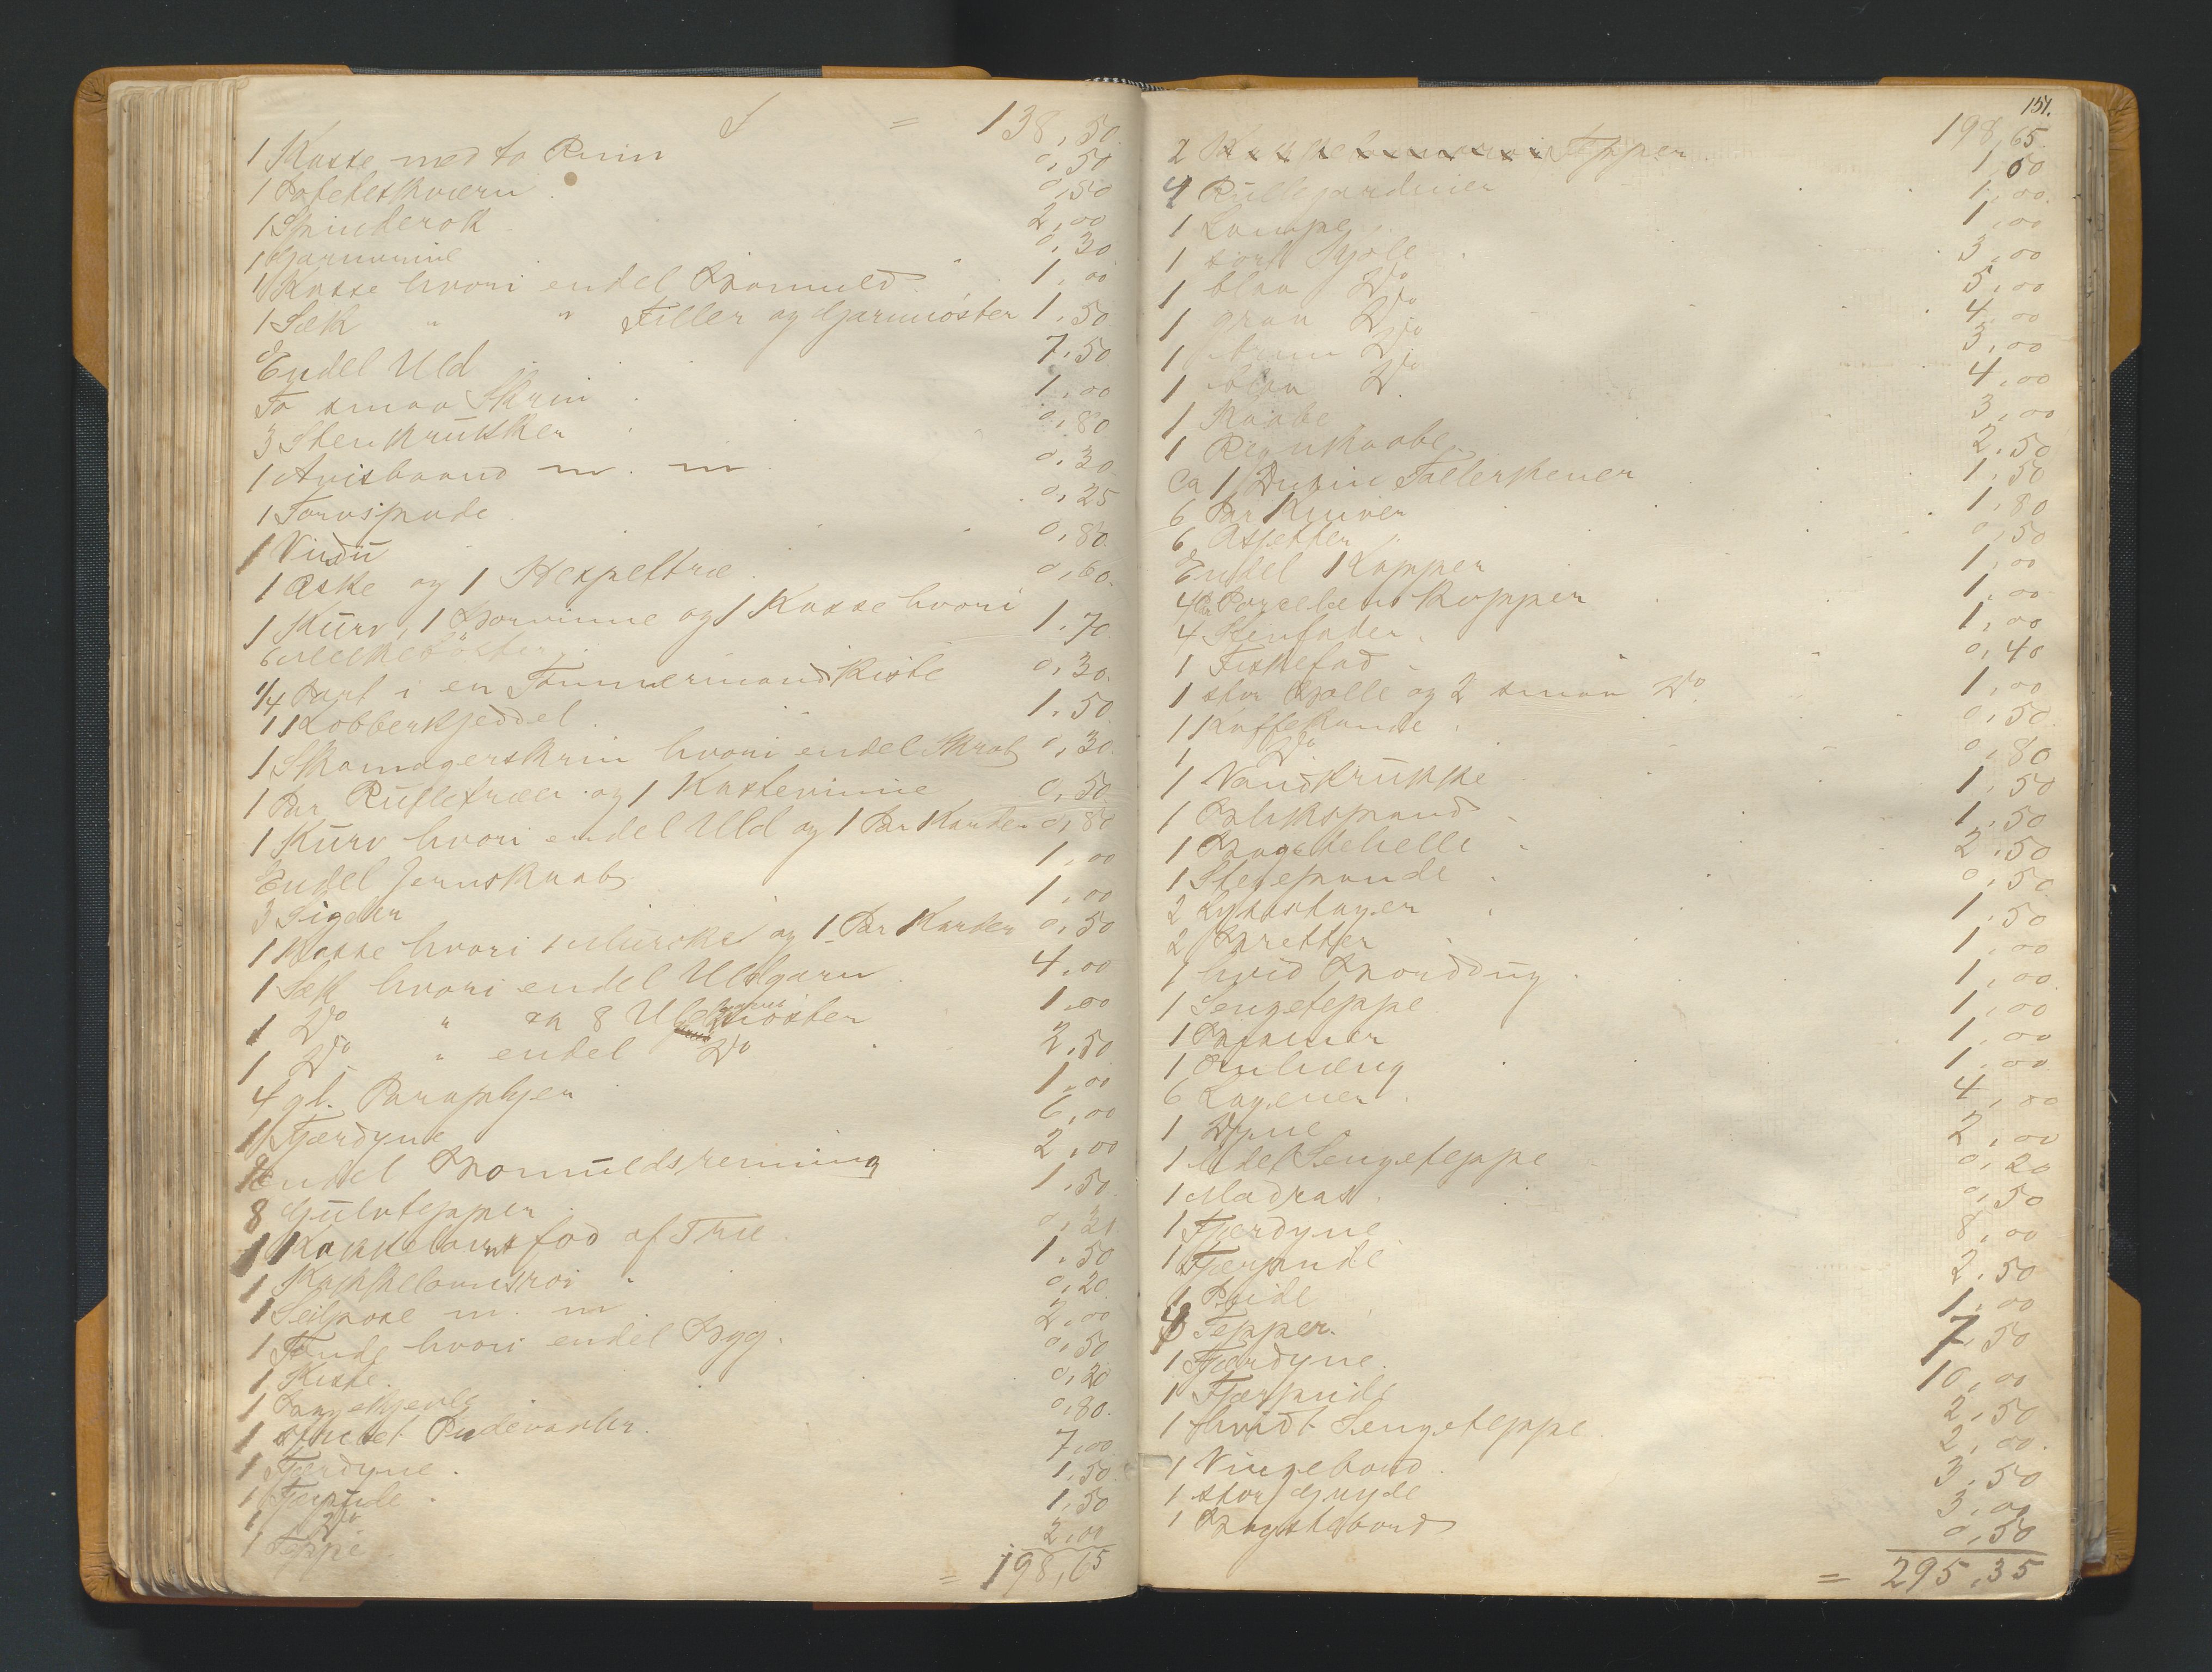 = 138,50.
1 Kasse med to Rum 0,50
1 Poteteskværn 0,50
1 Spinderok 2,00
1 Garnvinne 0,30
1 Kasse hvori endel Bomuld 1,00
1 Sæk " " Filler og Garnnöster 1,50
Endel Uld 7,50
To smaa Skrin 1,00
3 Stenkrukker 0,80
1 Avisbaand m. m 0,30
1 Torvspade 0,25
1 Vindu 0,80.
1 Æske og 1 Hespeltræ 0,60.
1 Kurv, 1 Garnvinne og 1 Kasse hvori
6 1,70.
1/4 Part i en Tømmermandkiste 0,30.
1 Kobberkjeddel 1,50
1 Skomagerskrin hvori endel Skrab 0,30.
1 Par Rulletræer og 1 Kastevinne 0,50.
1 Kurv hvori endel Uld og 1 Par Karder 0,80
Endel Jernskrab 1,00
3 Sigder 1,00
1 Kasse hvori 1 og 1 Par Karder 0,50
1 Sæk hvori endel Uldgarn 4,00
1 Do " ca 8 nöster 1,00
1 Do " endel Do 2,50
4 gl. Paraplyer 1,00
1 Fjærdyne 6,00
Endel Bomuldsrenning 2,00
8 Gulvtepper 1,50
1 Kakkelovnsfod af Træ 0,21
1 Kakkelovnsrør 1,50
1 Seilpose m. m 0,20
1 Tønde hvori endel Byg. 2,00
1 Kiste. 0,50
1 0,20
1 Pudevarer. 0,80.
1 Fjærdyne. 7,00
1 Fjærpude. 1,50
1 Do 1,50
1 Teppe 2,00
= 198,65
151.
198,65.
2 Tepper. 1,50
4 Rullegardiner 1,00.
1 Lampe 1,00
1 sort Kjole 3,00
1 blaa Do 5,00
1 graa Do 4,00
1 brun Do 3,00
1 blaa Do 4,00
1 Kaabe 3,00
1 Regnkaabe 2,50
Ca 1 Dusin Tallerkener 1,50
6 Par Kniver 1,80
6 Asjetter 0,50
Endel Kopper 1,00
4 Par Porcelens Kopper 1,00
4 Stenfader. 1,00
1 Fiskefad 0,40
1 stor Bolle og 2 smaa Do. 1,00
1 Kaffekande 0,50.
1 Do 0,80
1 Vandkrukke 1,50
1 Blikspand 1,50
1 Bagstehelle 2,50
1 Stegepande 0,50
2 Lysestager 1,50
2 Bretter 1,00
1 hvid Borddug 1,00
1 Sengeteppe 1,00
1 1,00
1 Omhæng 1,00
6 Lagener 4,00
1 Dyne 2,00
1 Sengeteppe 0,20
1 Madras. 0,50
1 Fjærdyne 8,00
1 Fjærpude 2,50
1 Pude 1,00
4 Tepper. 7,50
1 Fjærdyne. 10,00
1 Fjærpude 2,50
1 hvidt Sengeteppe 2,00.
1 Vingebord. 3,50
1 stor Gryde 3,00
1 Bagstebord 0,50
= 295,35